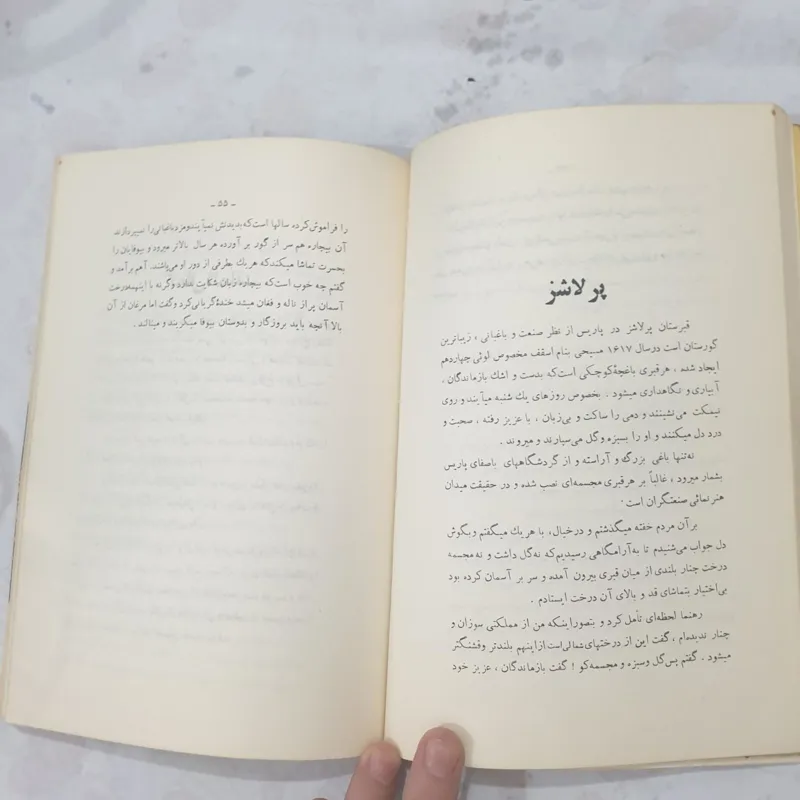 پرلاشز
قبرستان پرلاشز در پاریس از نظر صنعت و باغبانی ، زیباترین
گورستان است درسال ۱۶۱۷ مسیحی بنام اسقف مخصوص لوئی چهاردهم
ایجاد شده ، هرقبری باغچهٔ کوچکی است‌که بدست و اشك بازماندگان ،
آبیاری و نگاهداری میشود . بخصوص روزهای یك شنبه میآیند و روی
نیمکت می‌نشینند و دمی را ساکت و بی‌زبان ، با عزیز رفته ، صحبت و
درد دل میکنند و او را بسبزه وگل می‌سپارند و میروند .
نه‌تنها باغی بزرگ و آراسته و از گردشگاههای باصفای پاریس
بشمار میرود ، غالباً بر هرقبری مجسمه‌ای نصب شده و در حقیقت میدان
هنرنمائی صنعتگران است .
برآن مردم خفته میگذشتم و درخیال، با هریك میگفتم وبگوش
دل جواب می‌شنیدم تا به‌آرامگاهی رسیدیم‌که نه‌گل داشت و نه مجسمه
درخت چنار بلندی از میان قبری بیرون آمده و سر بر آسمان کرده بود
بی‌اختیار بتماشای قد و بالای آن درخت ایستادم .
رهنما لحظه‌ای تأمل کرد و بتصوراینکه من از مملکتی سوزان و
چنار ندیده‌ام ، گفت این از درختهای شمالی‌است ازاینهم بلندتر وقشنگتر
میشود . گفتم پس‌گل وسبزه و مجسمه‌کو ! گفت بازماندگان ، عزیز خود
ـ ۵۵ ـ
را فراموش کرده سالها است‌که بدیدنش نمیآیند ومزد باغبانی را نمیپردازند
آن بیچاره هم سر از گور بر آورده هر سال بالاتر میرود و بیوفایان را
بحسرت تماشا میکندکه هریك بطرفی از دور او می‌پاشند. آهم برآمد و
گفتم چه خوب است‌که بیچاره زبان شکایت ندارد وگرنه با اینهمه‌درخت
آسمان پراز ناله و فغان میشد خنده‌ٔگریانی‌کرد وگفت اما مرغان از آن
بالا آنچه باید بروزگار و بدوستان بیوفا میگریند و مینالند .